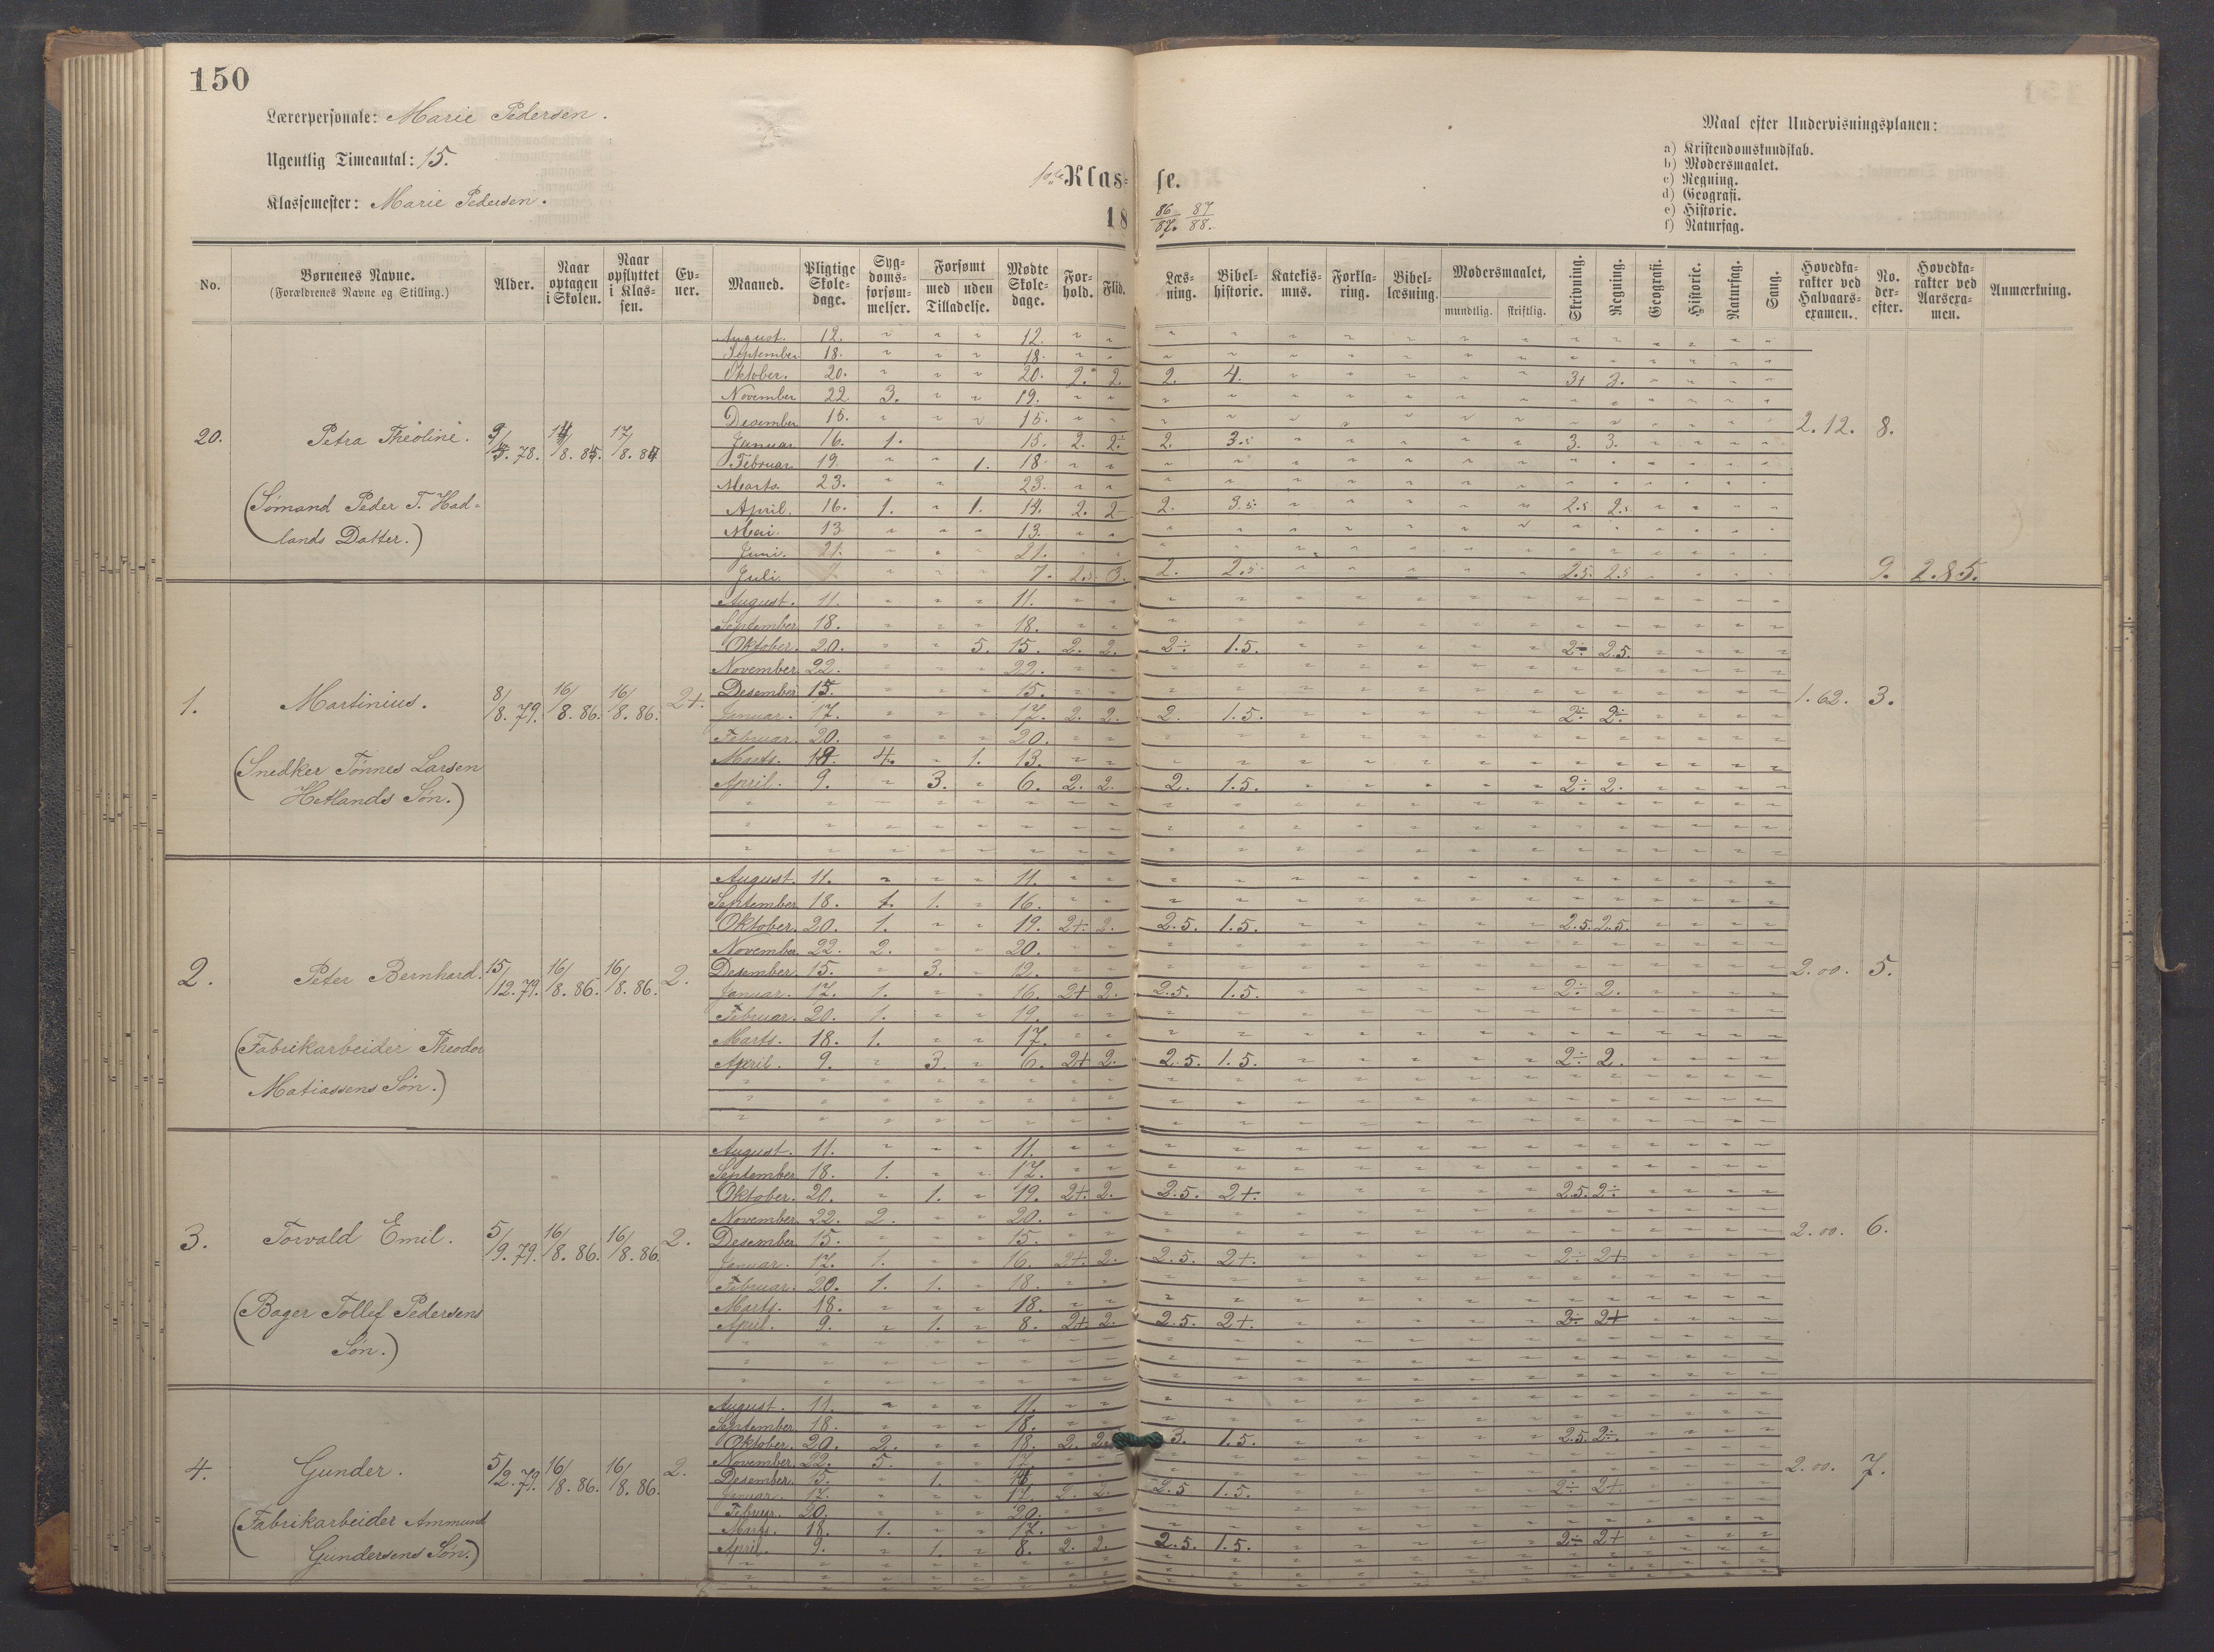 150
Lærerpersonale: Marie Pedersen.
Ugentlig Timeantal: 15.
Klassemester: Marie Pedersen.
Klas= se.
18 86/87. 87/88.
Maal efter Undervisningsplanen:
a) Kristendomskundskab.
b) Modersmaalet.
c) Regning.
d) Geografi.
e) Historie.
f) Naturfag.
No. Børnenes Navne. (Forældrenes Navne og Stilling.) Alder. Naar optagen i Skolen. Naar opflyttet i Klas-sen. Ev-ner. Maaned. Pligtige Skole-dage. Syg-doms-forsøm-melser. Forsømt med uden Tilladelse. Mødte Skole-dage. For-hold. Flid. Læs-ning. Bibel-historie. Katekis-mus. Forkla-ring. Bibel-læsning. Modersmaalet, mundtlig. skriftlig. Skrivning. Regning. Geografi. Historie. Naturfag. Sang. Hovedka-rakter ved Halvaars-examen. No. der-efter. Hovedka-rakter ved Aarsexa-men. Anmærkning.
August. 12. 12.
September. 18. 18.
Oktober. 20. 20. 2. 2. 2. 4. 3+ 3.
November 22 3. 19.
Desember 15. 15.
20. Petra Theoline. 78. 2.12. 8.
Januar 16. 1. 15. 2. 2. 2. 3.5 3. 3.
Februar 19. 1. 18.
Marts. 23. 23.
(Sømand Peder T. Had=
April. 16. 1. 1. 14. 2. 2 2. 3.5. 2.5 2.5
lands Datter.)
Mai. 13. 13.
Juni. 21. 21.
Juli. 7. 2.5 3. 2. 2.5 2.5. 2.5 9. 2.85.
August. 11. 11.
September 18. 18.
Oktober. 20. 5. 15. 2. 2. 2÷ 1.5. 2÷ 2.5.
November 22. 22.
Desember 15. 15.
1. Martinius. 8/8. 79. 16/8. 86. 16/8. 86. 2+. 1.62. 3.
Januar. 17. 17. 2. 2. 2. 1.5. 2÷ 2÷
Februar. 20. 20.
(Snedker Tønnes Larsen
Marts. 18. 4. 1. 13.
Hetlands Søn.)
April. 9. 3. 6. 2. 2. 2. 1.5. 2÷ 2.
August. 11. 11.
September 18. 1. 1. 16.
Oktober. 20. 1. 19. 2+. 2. 2.5. 1.5. 2.5. 2.5.
November. 22. 2. 20.
Desember. 15. 3. 12.
2. Peter Bernhard. 15/12. 79. 16/8. 86. 16/8. 86. 2. 2.00. 5.
Januar. 17. 1. 16. 2+ 2. 2.5. 1.5. 2÷ 2.
Februar. 20. 1. 19.
Marts. 18. 1. 17.
(Fabrikarbeider Theodor
April. 9. 3. 6. 2+ 2. 2.5. 1.5. 2÷ 2.
Matiassens Søn.)
August. 11. 11.
September 18. 1. 17.
Oktober. 20. 1. 19. 2+. 2. 2.5. 2+. 2.5. 2÷
November. 22. 2. 20.
Desember 15. 15.
3. Torvald Emil. 5/9. 79. 16/8. 86. 16/8. 86. 2. 2.00. 6.
Januar. 17. 1. 16. 2+. 2. 2.5. 2+. 2÷ 2+
Februar. 20. 1. 1. 18.
Marts. 18. 18.
(Bager Tollef Pedersens
April. 9. 1. 8. 2+ 2. 2.5. 2+. 2÷ 2+
Søn.)
August. 11. 11.
September 18. 18.
Oktober. 20. 2. 18. 2. 2. 3. 1.5. 2.5. 2÷
November. 22. 5. 17.
Desember. 15. 1. 14
4. Gunder. 5/2. 79. 16/8. 86. 16/8. 86. 2. 2.00. 7.
Januar. 17. 17. 2. 2. 2.5 1.5. 2÷ 2+.
Februar. 20. 20.
(Fabrikarbeider Ammund
Marts. 18. 1. 17.
Gundersens Søn.)
April. 9. 1. 8. 2. 2. 2.5. 1.5. 2÷ 2+